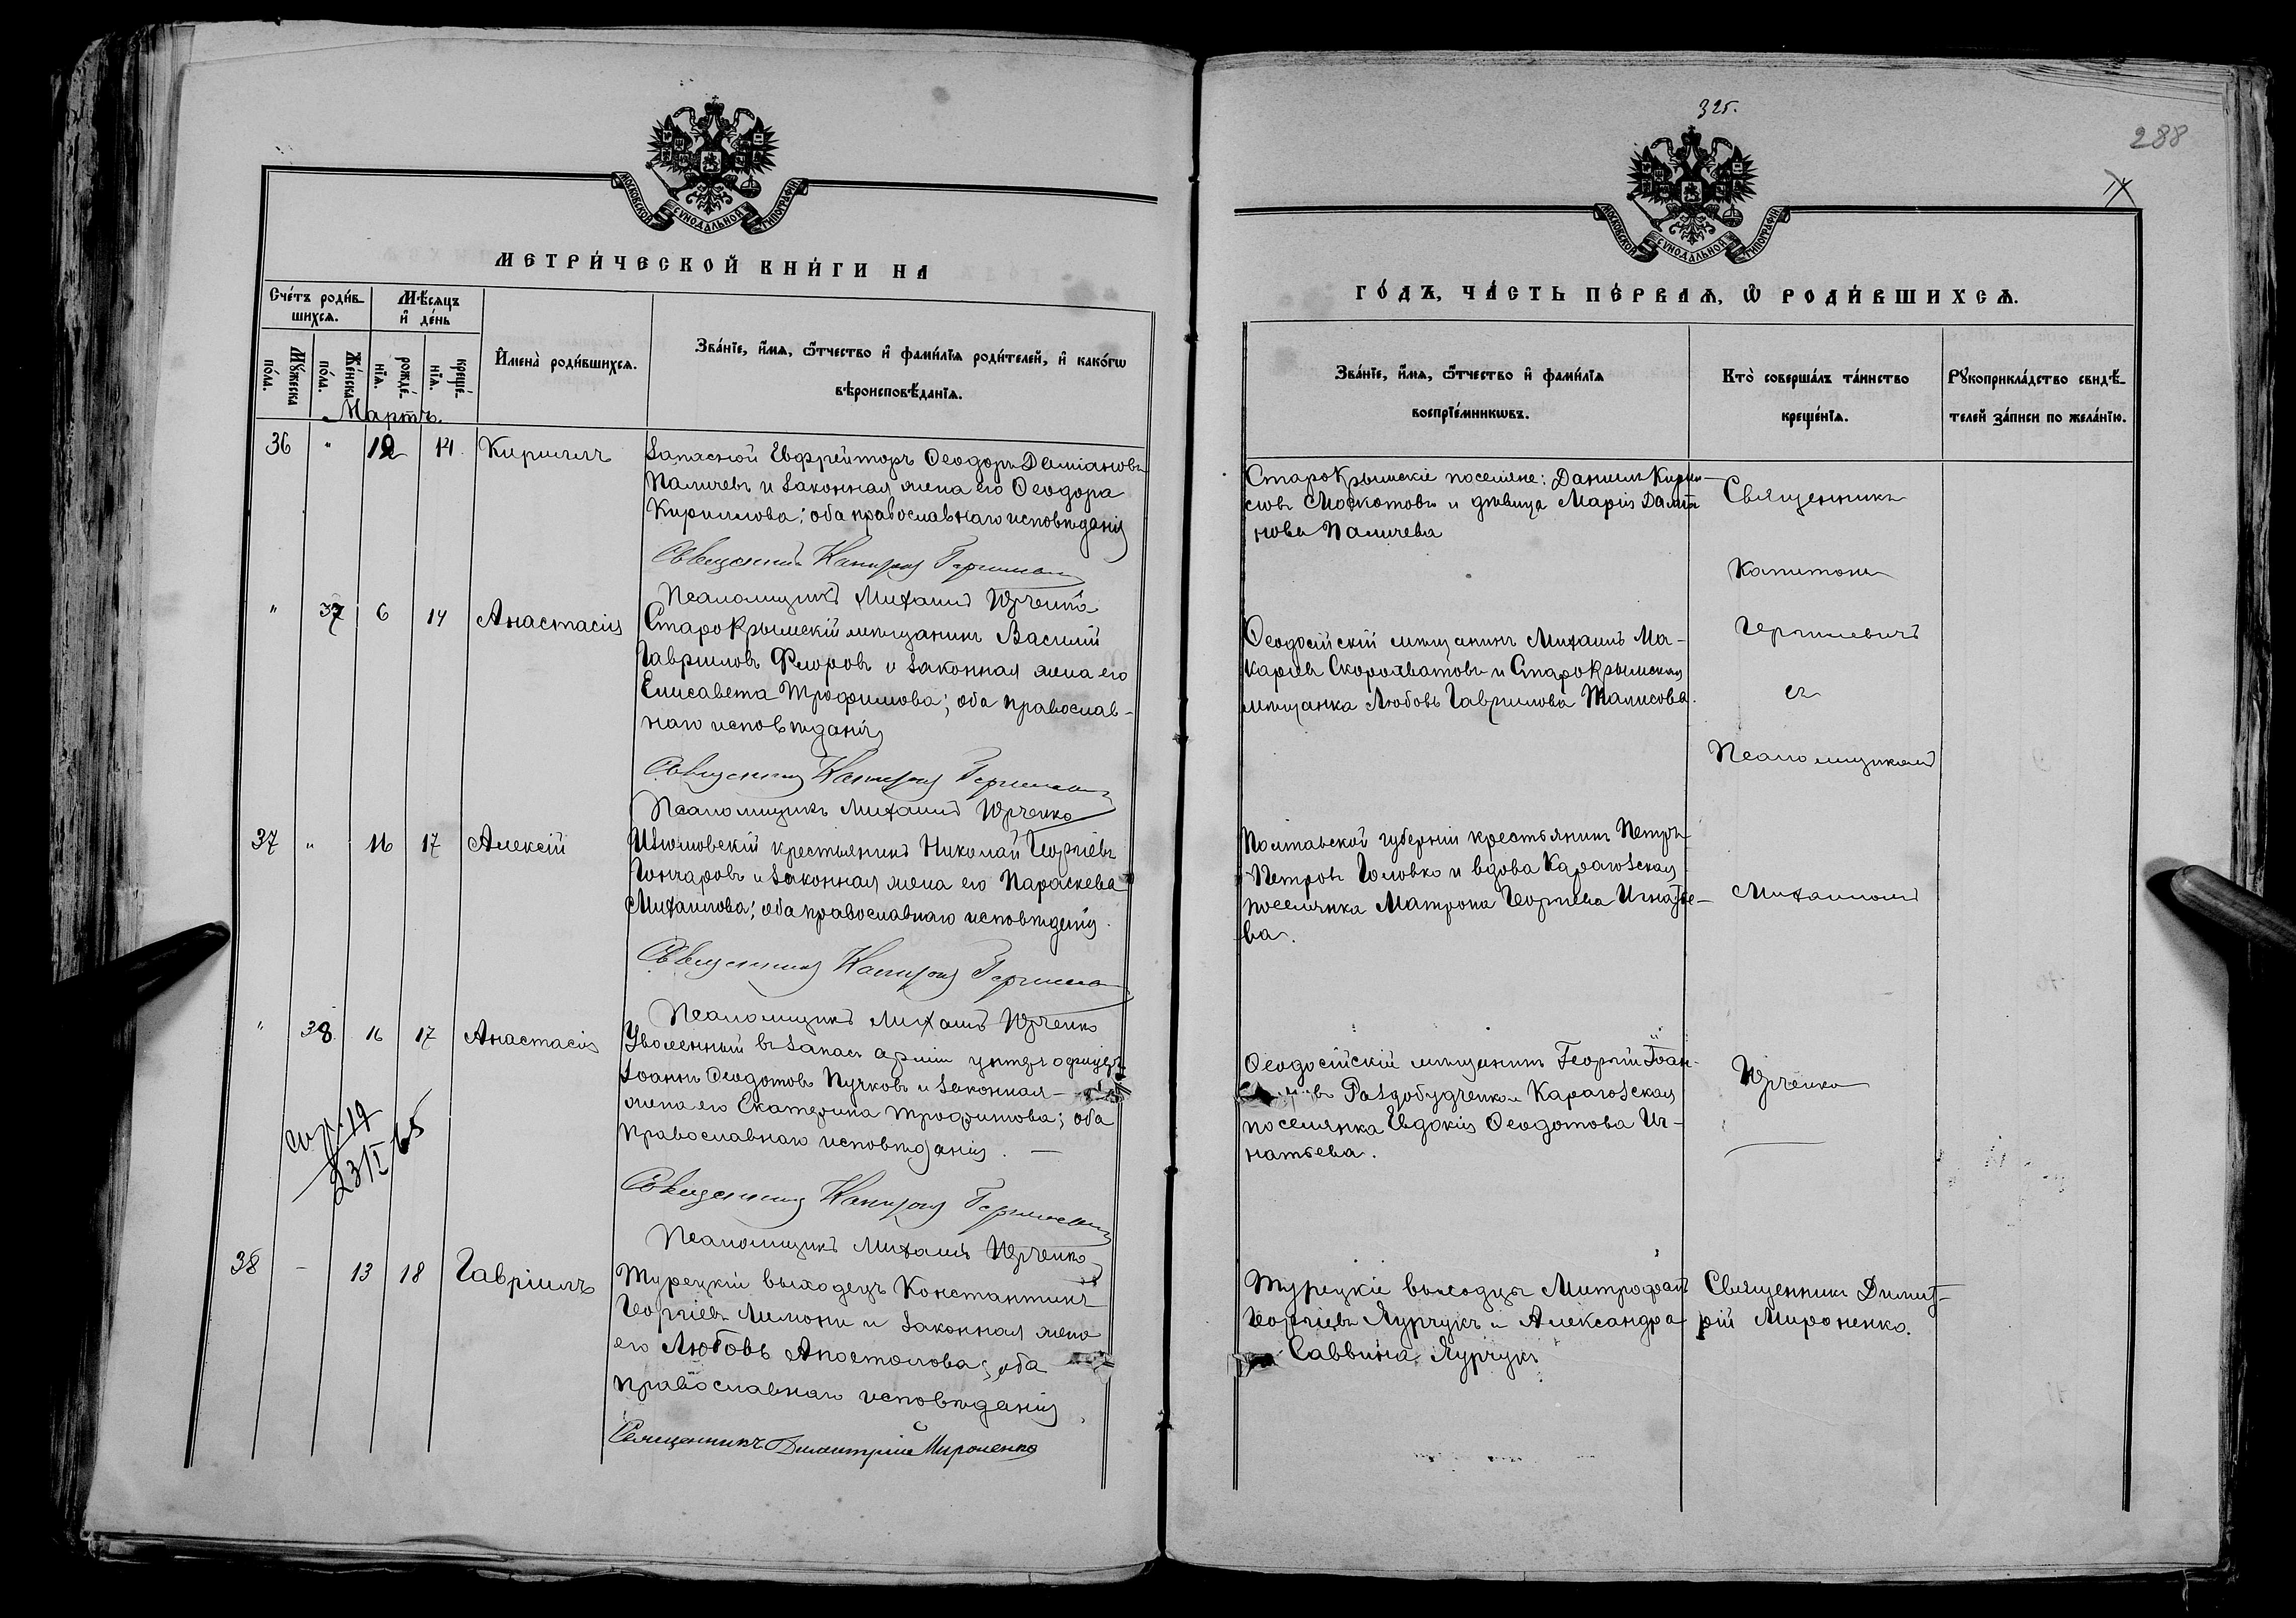 МОСКОВСКОЙ СѴНОДАЛЬНОЙ ТИПОГРАФІИ
МЕТРИ́ЧЕСКОЙ КНИ́ГИ НА
Сче́тъ роди́в-
шихсѧ.
Мѣ́сѧцъ
и҆ де́нь
И҆мена̀ роди́вшихсѧ.
Зва́нїе, и҆́мѧ, ѻ҆́тчество и҆ фами́лїѧ роди́телей, и҆ како́гѡ
вѣроисповѣ́данїѧ.
Мꙋ́жеска
по́ла.
Же́нска
по́ла.
рожде́-
нїѧ.
креще́-
нїѧ.
Мартъ.
36 " 12 14 Кириллъ
Запасной Евфрейторъ Ѳеодоръ Даміановъ
Паличевъ и законная жена его Ѳеодора
Кириллова; оба православнаго исповѣданія
Священникъ Капитонъ
Псаломщикъ Михаилъ Юрченко
" 37 6 14 Анастасія
СтароКрымскій мѣщанинъ Василій
Гавриловъ Флоровъ и законная жена его
Елисавета Трофимова; оба православ-
наго исповѣданія
Священникъ Капитонъ
Псаломщикъ Михаилъ Юрченко
37 " 16 17 Алексій
крестьянинъ Николай Георгіевъ
Гончаровъ и законная жена его Параскева
Михаилова; оба православнаго исповѣданія.
Священникъ Капитонъ
Псаломщикъ Михаилъ Юрченко
" 38 16 17 Анастасія
Уволенный въ запасъ арміи унтеръ офицеръ
Іоаннъ Ѳеодотовъ Пучковъ и законная
жена его Екатерина Трофимова; оба
православнаго исповѣданія. —
23/I 65
Священникъ Капитонъ
Псаломщикъ Михаилъ Юрченко
38 – 13 18 Гавріилъ
Турецкій выходецъ Константинъ
Георгіевъ Лимони и законная жена
его Любовь Апостолова; оба
православнаго исповѣданія
Священникъ Димитрій Мироненко
325.
288
МОСКОВСКОЙ СѴНОДАЛЬНОЙ ТИПОГРАФІИ
ГО́ДЪ, ЧА́СТЬ ПЕ́РВАѦ, Ѡ҆ РОДИ́ВШИХСѦ.
Зва́нїе, и҆́мѧ, ѻ҆́тчество и҆ фами́лїѧ
воспрїе́мникѡвъ.
Кто̀ соверша́лъ та́инство
креще́нїѧ.
Рꙋкоприкла́дство свидѣ́-
телей за́писи по жела́нїю.
СтароКрымскіе поселяне: Даниилъ Кирил-
ловъ и дѣвица Марія Даміа
нова Паличева
Священникъ
Капитонъ
Ѳеодосійскій мѣщанинъ Михаилъ Ма-
каріевъ Скорохватовъ и СтароКрымская
мѣщанка Любовь Гаврилова
съ
Псаломщикомъ
Полтавской губерніи крестьянинъ Петръ
Петровъ Головко и вдова Карагозская
поселянка Матрона Георгіева Игнатье-
ва.
Михаиломъ
Ѳеодосійскій мѣщанинъ Георгій Іоан-
въ Раздобудченко и Карагозская
поселянка Евдокія Ѳеодотова Иг-
натьева.
Юрченко
Турецкіе выходцы Митрофанъ
Георгіевъ и Александра
Саввина
Священникъ Димит-
рій Мироненко.